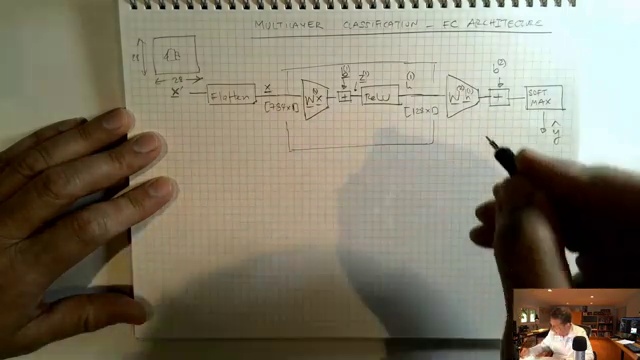 MULTILAYER CLASSIFICATION - FC ARCHITECTURE
28
28
x'
Flatten
x
[784x1]
W⁽¹⁾x
b⁽¹⁾
+
z⁽¹⁾
ReLU
h⁽¹⁾
[128x1]
W⁽²⁾h⁽¹⁾
b⁽²⁾
+
SOFT
MAX
ŷ